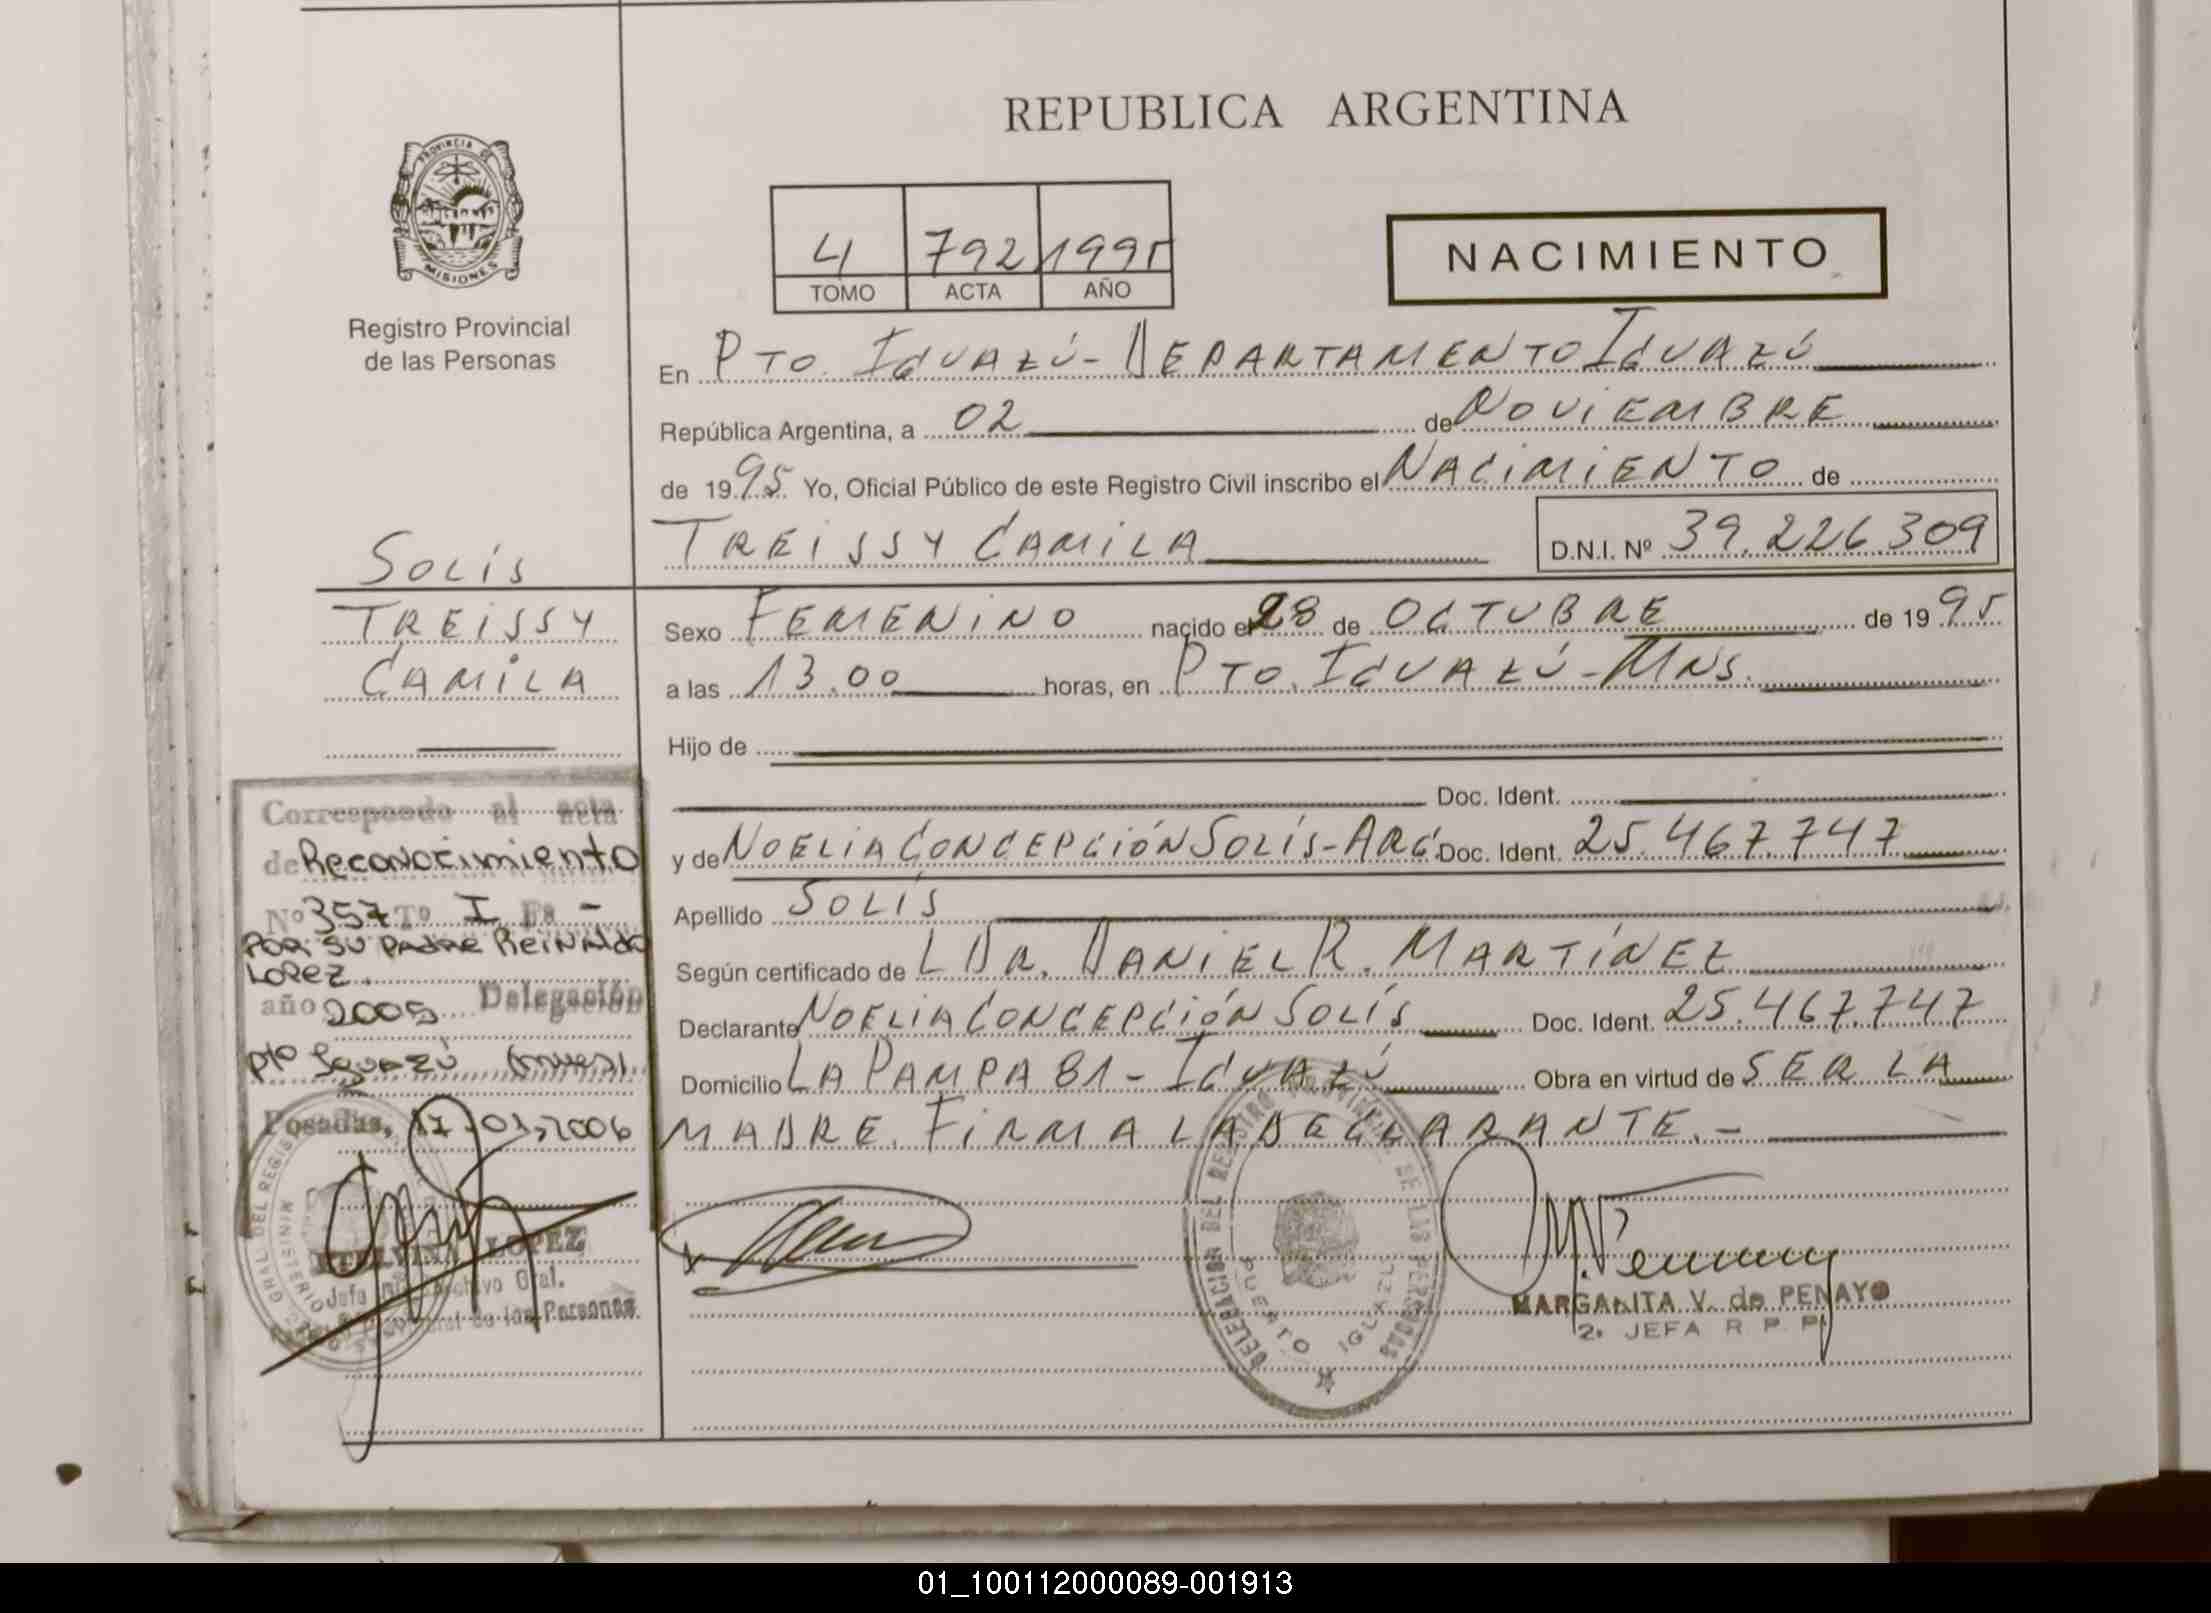 REPUBLICA ARGENTINA
PROVINCIA DE
MISIONES
Registro Provincial
de las Personas
4 792 1995
TOMO ACTA AÑO
NACIMIENTO
En PTO. IGUAZÚ - DEPARTAMENTO IGUAZÚ
República Argentina, a 02 de NOVIEMBRE
de 1995 Yo, Oficial Público de este Registro Civil inscribo el NACIMIENTO de
TREISSY CAMILA D.N.I. Nº 39.226.309
SOLÍS
TREISSY
CAMILA
Sexo FEMENINO nacido el 28 de OCTUBRE de 1995
a las 13.00 horas, en PTO. IGUAZÚ - MNS.
Hijo de
Doc. Ident.
y de NOELIA CONCEPCIÓN SOLÍS - ARG. Doc. Ident. 25.467.747
Apellido SOLÍS
Según certificado de L DR. DANIEL R. MARTÍNEZ
Declarante NOELIA CONCEPCIÓN SOLÍS Doc. Ident. 25.467.747
Domicilio LA PAMPA 81 - IGUAZÚ Obra en virtud de SER LA
MADRE. FIRMA LA DECLARANTE. -
Corresponde al acta
de Reconocimiento
Nº 357 Tº I Fª -
POR SU PADRE REINALDO
LOPEZ.
año 2005 Delegación
Pto Iguazú
Posadas, 17.01.2006
LOPEZ
Jefa Archivo Gral.
de las Personas
DELEGACION DEL REGISTRO PROVINCIAL DE LAS PERSONAS
PUERTO IGUAZU
MARGARITA V. de PENAYO
2º JEFA R P. P.
01_100112000089-001913